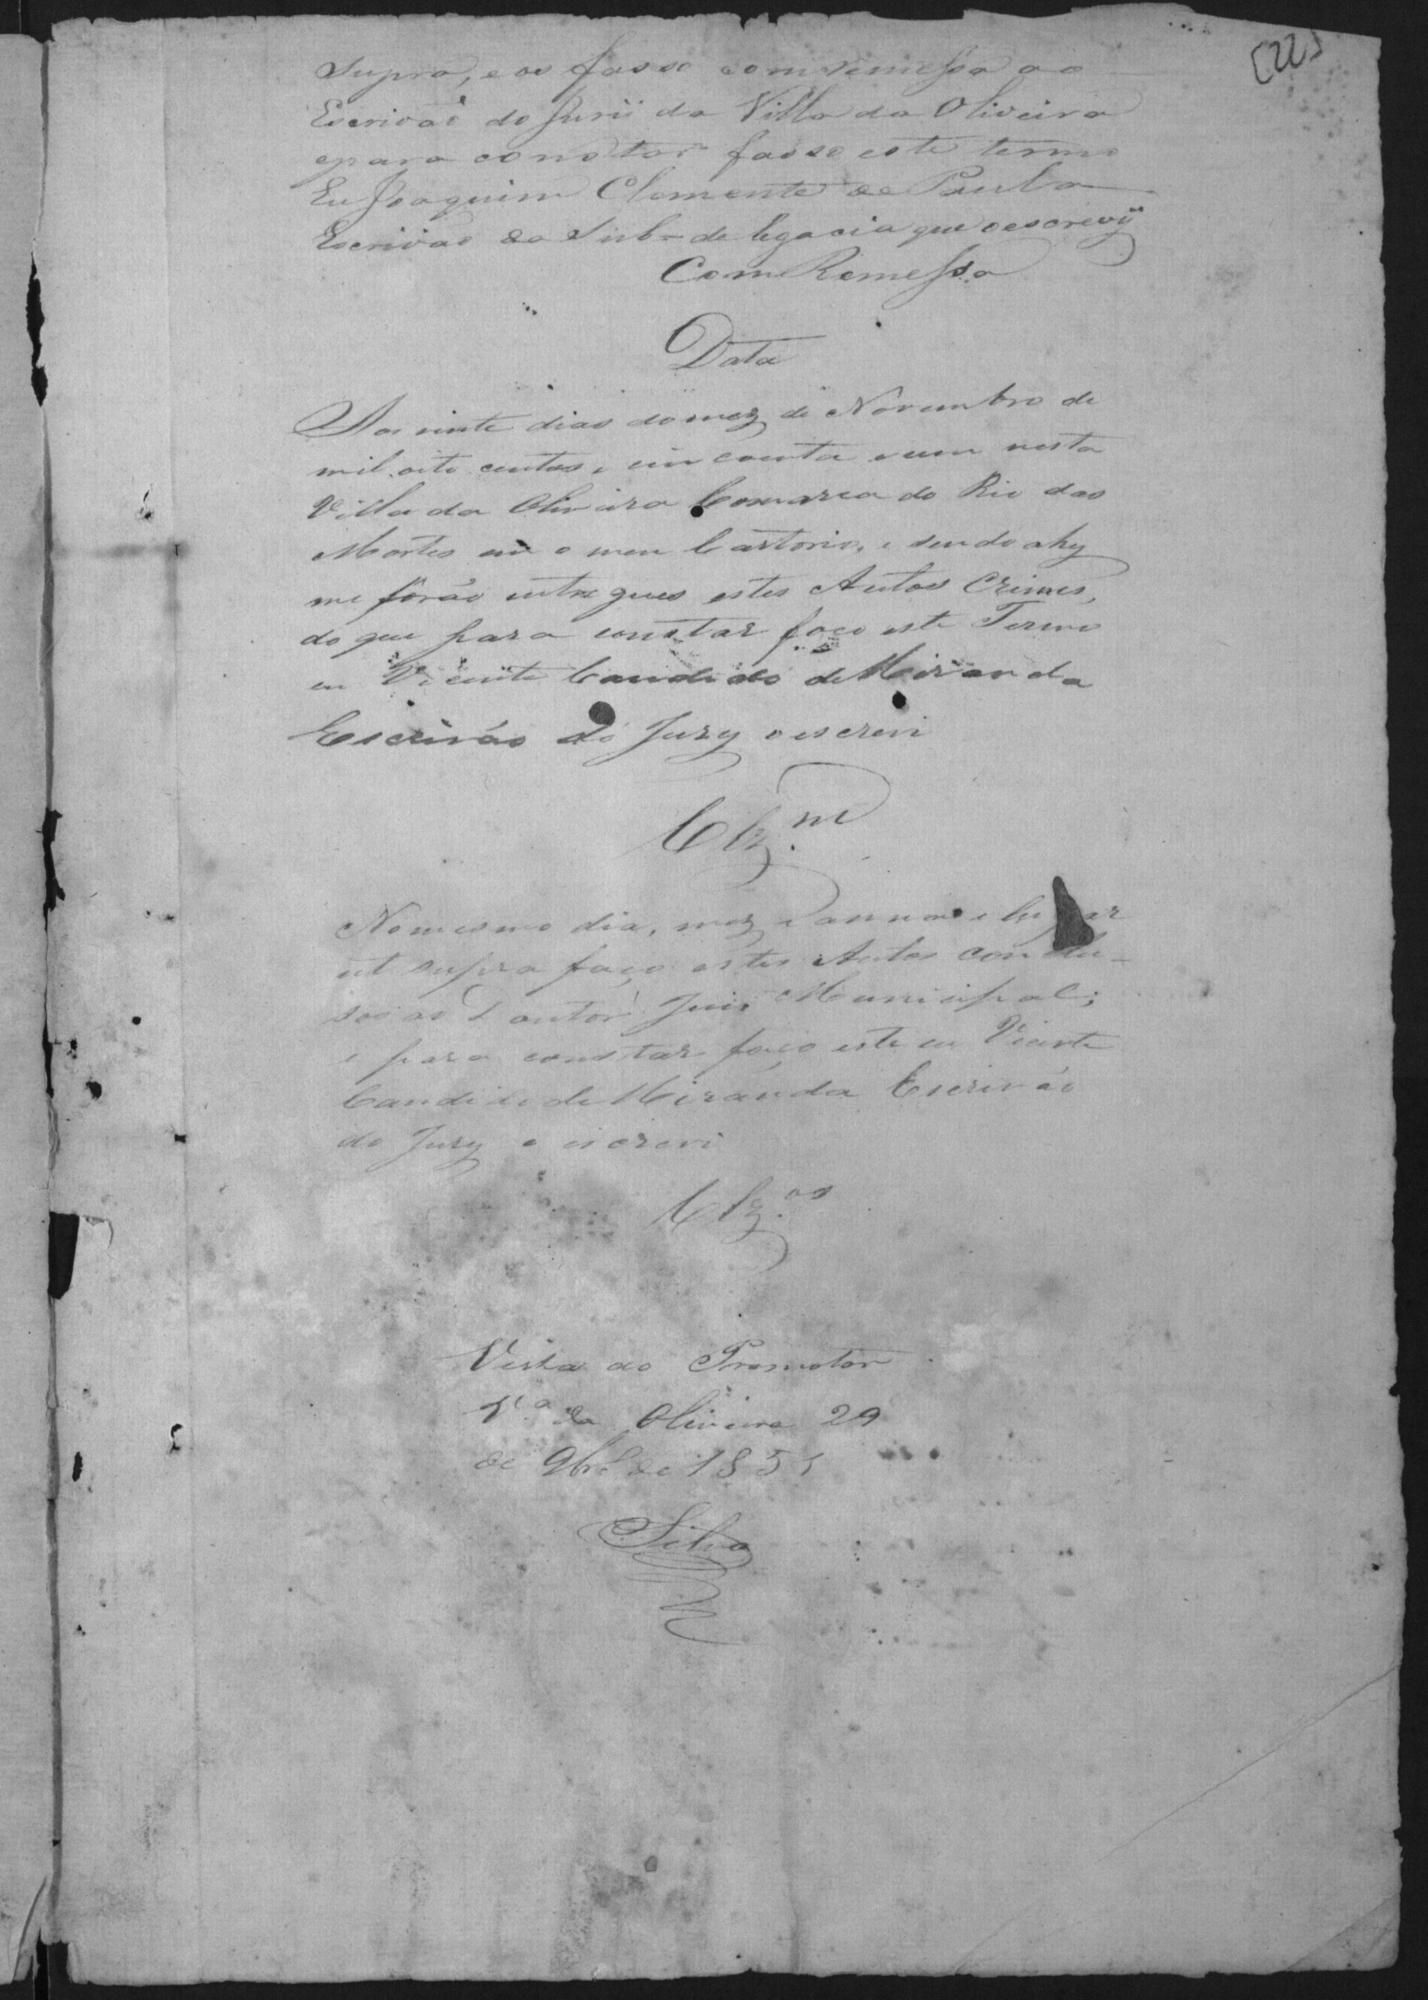 (22)
Supra, e os fasso com remessa ao
Escrivaõ do Jurii da Villa da Oliveira
epara constar fasso este termo
Eu Joaquim Clemente de Paula
Escrivaõ da Sub-delegacia que oescrevÿ
Com Remessa
Data
Aos vinte dias do mez de Novembro de
mil oito centos e cincoenta e um nesta
Villa da Oliveira Comarca do Rio das
Mortes em o meu Cartorio, e sendo ahy
me forão entregues estes Autos Crimes,
do que para constar faço este Termo
eu Vicente Candido de Miranda
Escrivão do Jury o escrevi
Clz.m
No mesmo dia, mez e anno e lugar
ut supra faço estes Autos conclu-
sos ao Doutor Juis Municipal;
e para constar faço este eu Vicente
Candido de Miranda Escrivão
do Jury o escrevi
Clz.os
Vista ao Promotor
Vª da Oliveira 29
de 9br.º de 1851
Silva